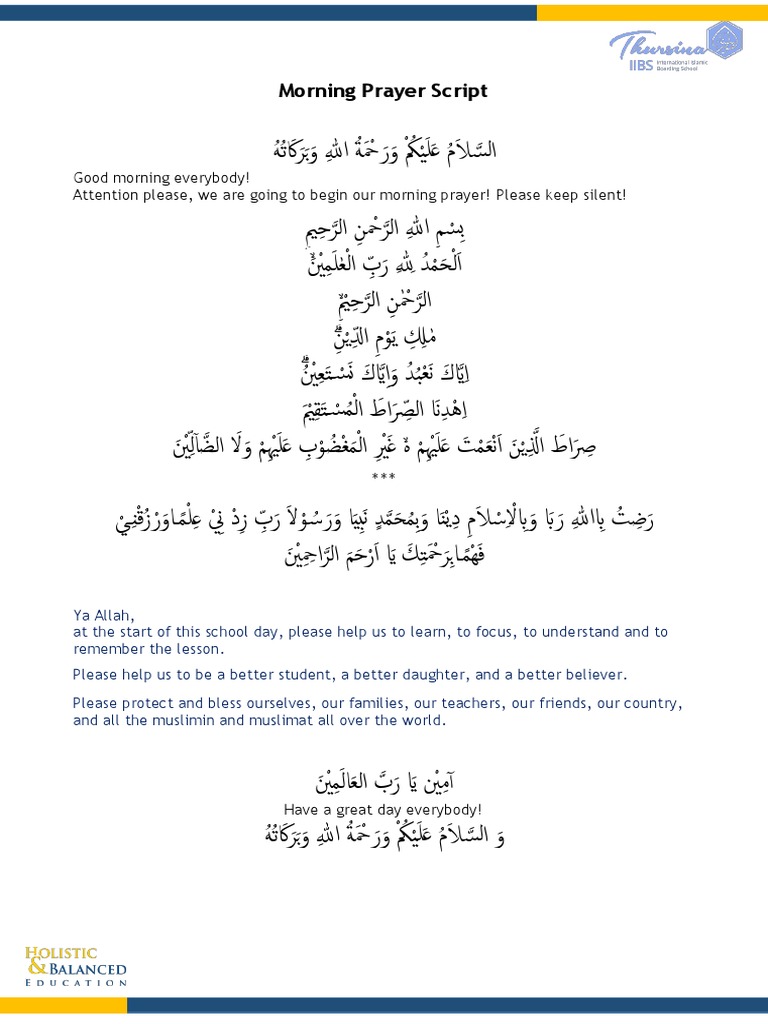 Thursina
IIBS International Islamic
Boarding School
Morning Prayer Script
السَّلاَمُ عَلَيْكُمْ وَرَحْمَةُ اللهِ وَبَرَكَاتُهُ
Good morning everybody!
Attention please, we are going to begin our morning prayer! Please keep silent!
بِسْمِ اللهِ الرَّحْمٰنِ الرَّحِيْمِ
اَلْحَمْدُ لِلّٰهِ رَبِّ الْعٰلَمِيْنَۙ
الرَّحْمٰنِ الرَّحِيْمِۙ
مٰلِكِ يَوْمِ الدِّيْنِۗ
اِيَّاكَ نَعْبُدُ وَاِيَّاكَ نَسْتَعِيْنُۗ
اِهْدِنَا الصِّرَاطَ الْمُسْتَقِيْمَ
صِرَاطَ الَّذِيْنَ اَنْعَمْتَ عَلَيْهِمْ ەۙ غَيْرِ الْمَغْضُوْبِ عَلَيْهِمْ وَلَا الضَّاۤلِّيْنَ
***
رَضِتُ بِاللهِ رَبَا وَبِالْاِسْلاَمِ دِيْنَا وَبِمُحَمَّدٍ نَبِيَا وَرَسُوْلاَ رَبِّ زِدْ نِيْ عِلْمًاوَرْزُقْنِيْ
فَهْمًابِرَحْمَتِكَ يَا اَرْحَمَ الرَّاحِمِيْنَ
Ya Allah,
at the start of this school day, please help us to learn, to focus, to understand and to
remember the lesson.
Please help us to be a better student, a better daughter, and a better believer.
Please protect and bless ourselves, our families, our teachers, our friends, our country,
and all the muslimin and muslimat all over the world.
آمِيْن يَا رَبَّ العَالَمِيْنَ
Have a great day everybody!
وَ السَّلاَمُ عَلَيْكُمْ وَرَحْمَةُ اللهِ وَبَرَكَاتُهُ
HOLISTIC
& BALANCED
EDUCATION